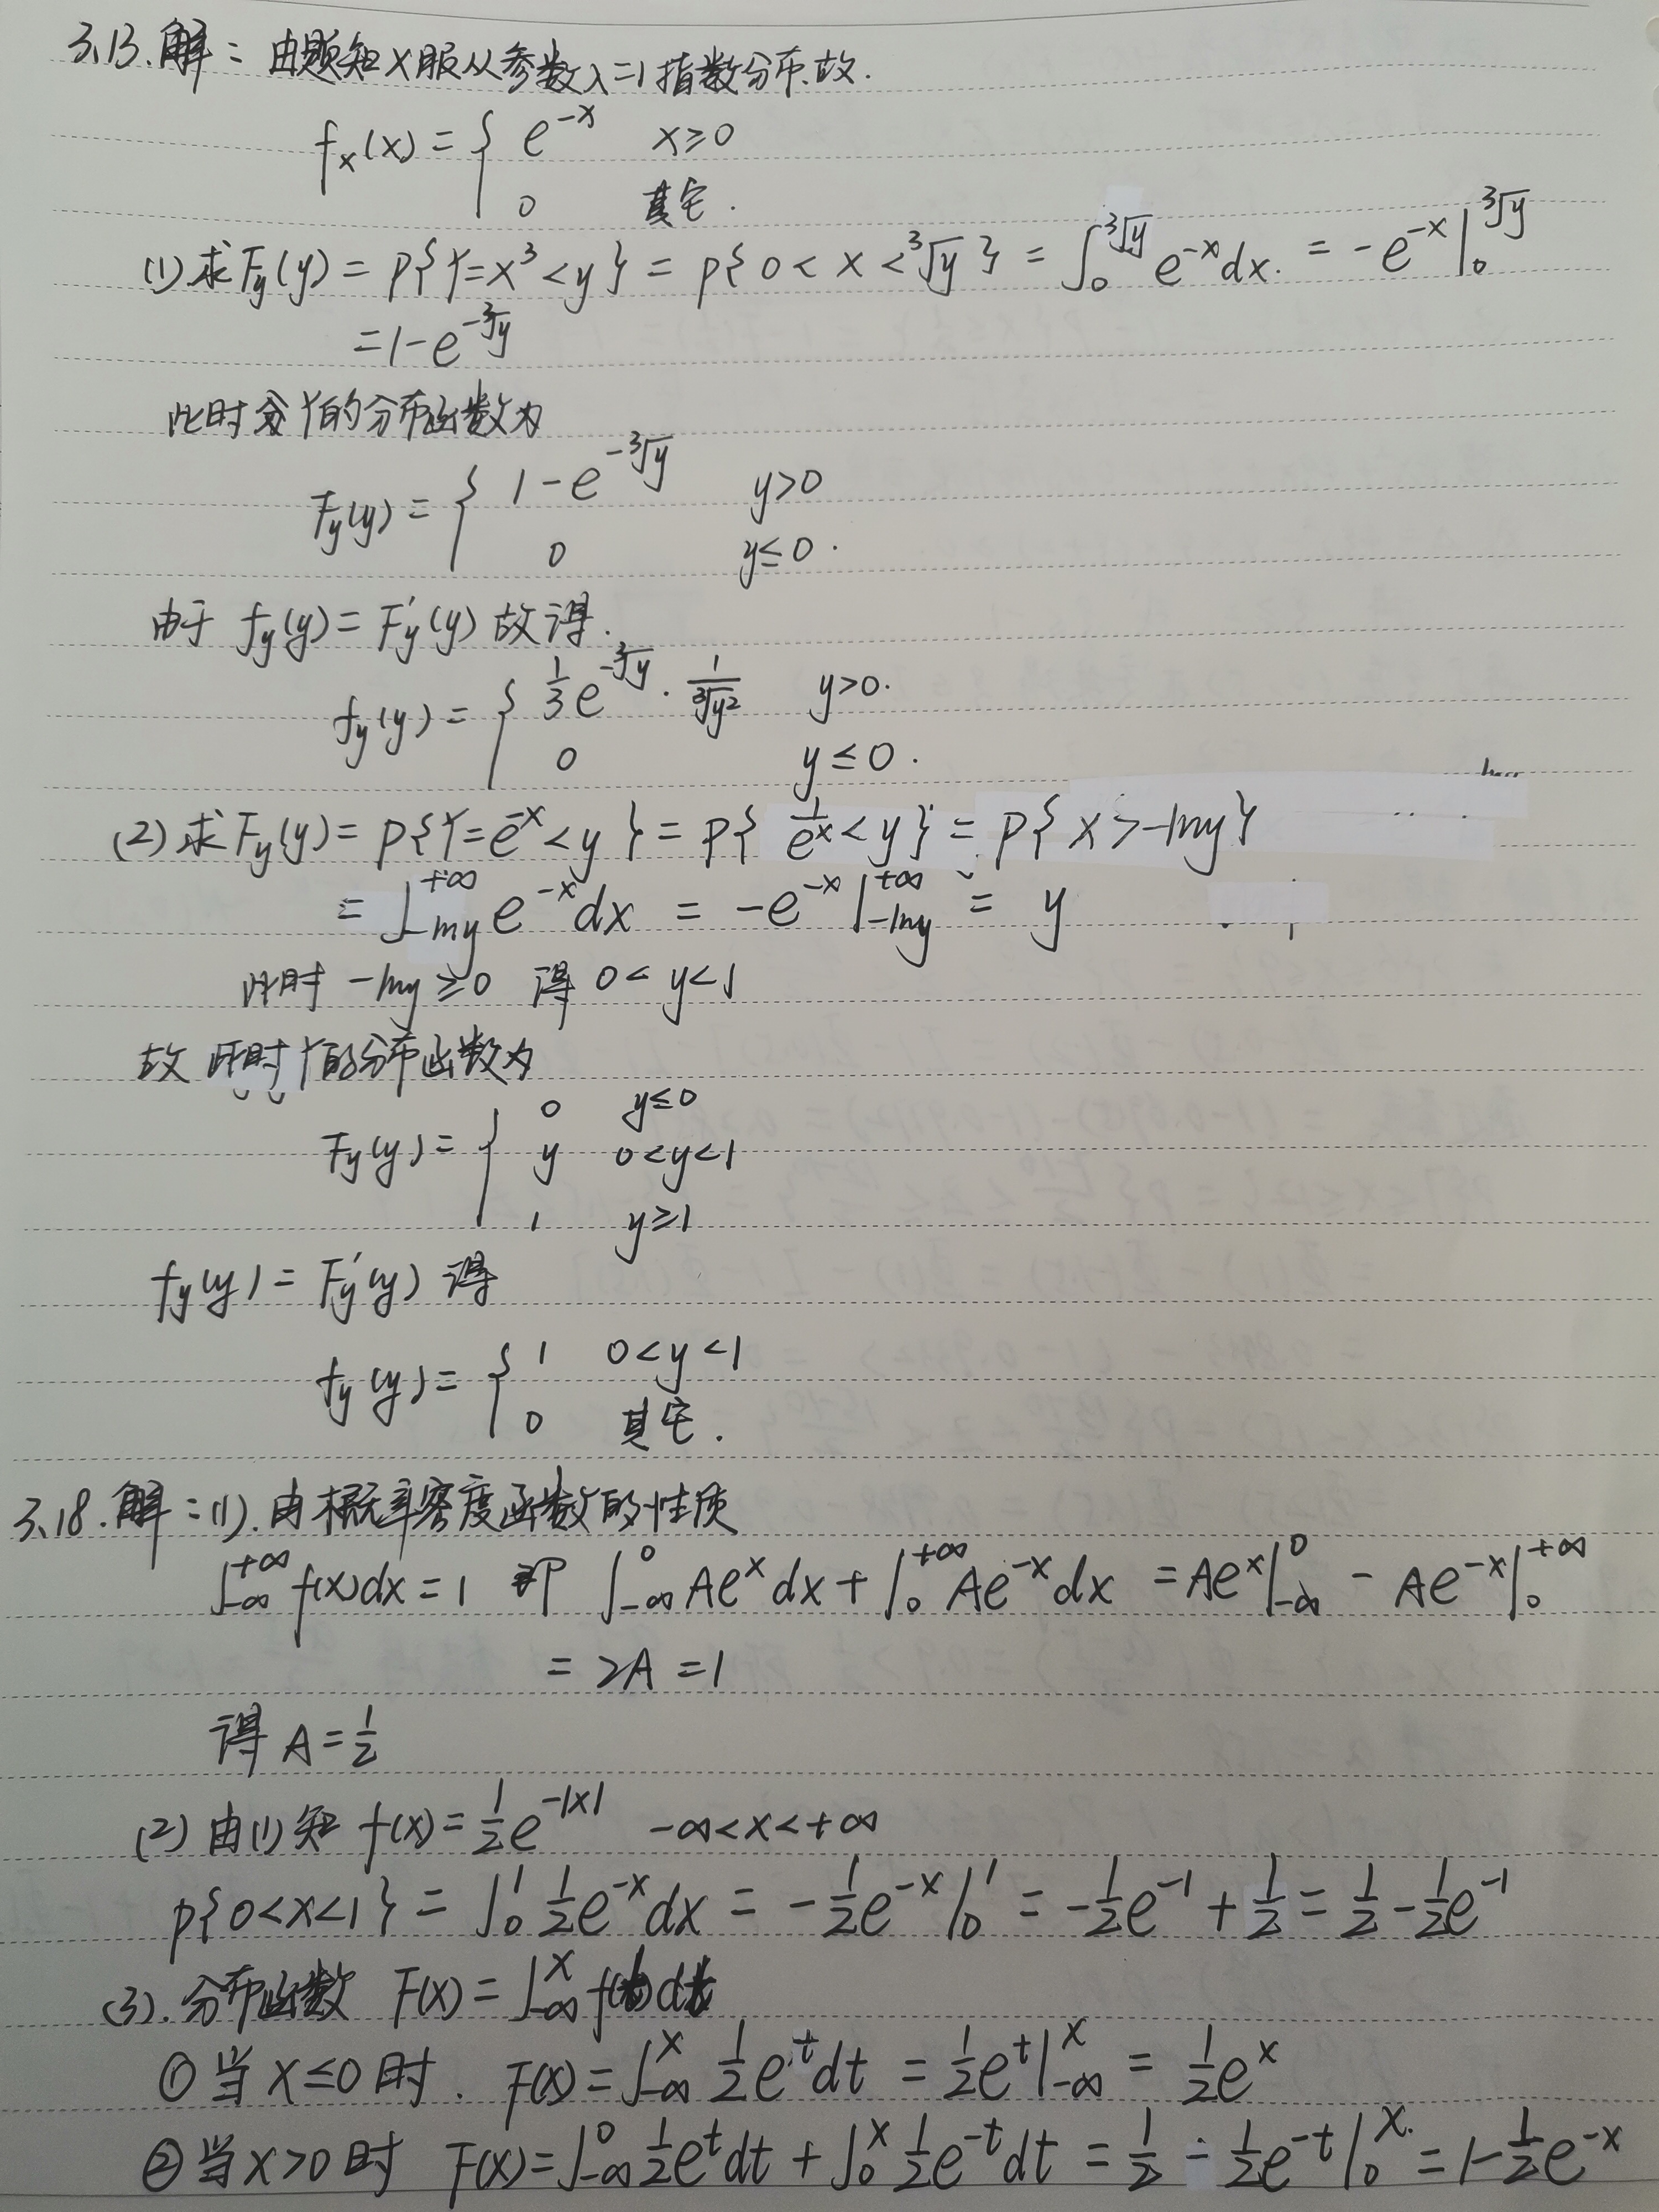 3.13.解：由题知X服从参数λ=1指数分布.故.
f_X(x) = { e^{-x}  x≥0
0  其它.
(1)求F_y(y) = P{Y=x³<y} = P{0<x<∛y} = ∫_0^{∛y} e^{-x}dx. = -e^{-x}|_0^{∛y}
=1-e^{-∛y}
此时 Y的分布函数为
F_y(y) = { 1-e^{-∛y}  y>0
0  y≤0.
由于 f_y(y) = F_y'(y) 故得.
f_y(y) = { 1/3 e^{-∛y} · 1/∛y²  y>0.
0  y≤0.
(2)求F_y(y) = P{Y=e^{-x}<y} = P{1/e^x<y} = P{x>-lny}
= ∫_{-lny}^{+∞} e^{-x}dx = -e^{-x}|_{-lny}^{+∞} = y
此时 -lny≥0 得 0<y<1
故 此时Y的分布函数为
F_y(y) = { 0  y≤0
y  0<y<1
1  y≥1
f_y(y) = F_y'(y) 得
f_y(y) = { 1  0<y<1
0  其它.
3.18.解：(1).由概率密度函数的性质
∫_{-∞}^{+∞} f(x)dx=1 即 ∫_{-∞}^0 Ae^x dx + ∫_0^{+∞} Ae^{-x} dx = Ae^x|_{-∞}^0 - Ae^{-x}|_0^{+∞}
= 2A = 1
得 A=1/2
(2) 由(1)知 f(x) = 1/2 e^{-|x|}  -∞<x<+∞
P{0<x<1} = ∫_0^1 1/2 e^{-x}dx = -1/2 e^{-x}|_0^1 = -1/2 e^{-1} + 1/2 = 1/2 - 1/2 e^{-1}
(3).分布函数 F(x) = ∫_{-∞}^x f(t)dt
①当 x≤0 时. F(x) = ∫_{-∞}^x 1/2 e^t dt = 1/2 e^t|_{-∞}^x = 1/2 e^x
②当 x>0 时 F(x) = ∫_{-∞}^0 1/2 e^t dt + ∫_0^x 1/2 e^{-t} dt = 1/2 - 1/2 e^{-t}|_0^x = 1-1/2 e^{-x}